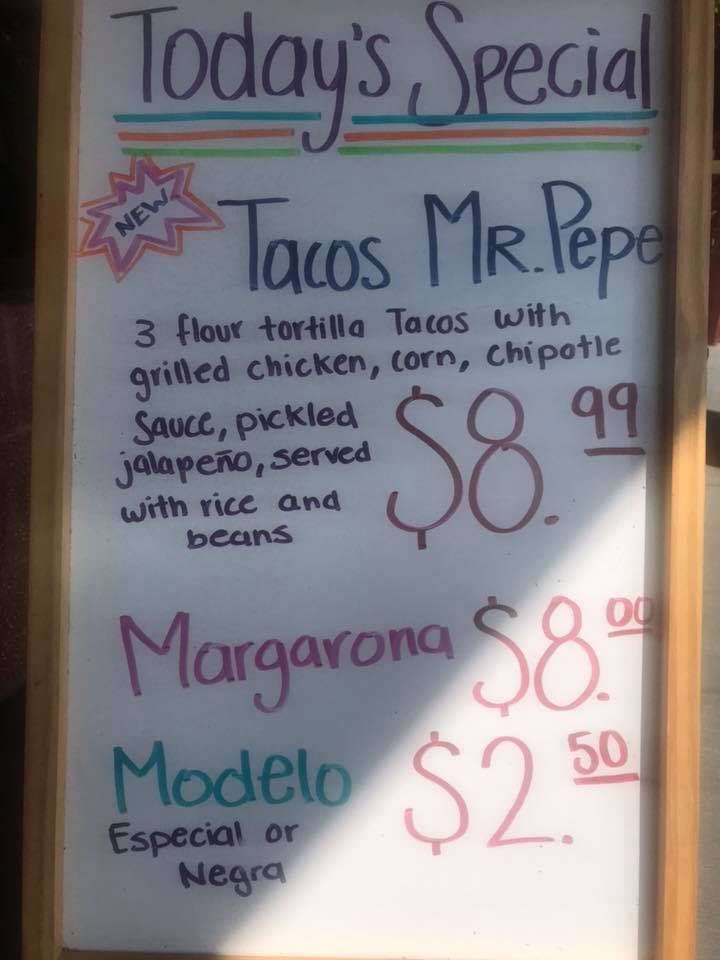 Today's Special
NEW
Tacos Mr. Pepe
3 flour tortilla Tacos with
grilled chicken, corn, chipotle
Sauce, pickled
jalapeño, served
with rice and
beans
$8.99
Margarona $8.00
Modelo $2.50
Especial or
Negra